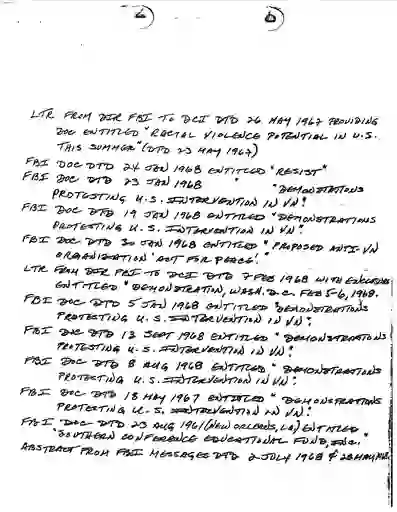 LTR FROM DIR FBI TO DCI DTD 26 MAY 1967 PROVIDING
DOC ENTITLED "RACIAL VIOLENCE POTENTIAL IN U.S.
THIS SUMMER" (DTD 23 MAY 1967)
FBI DOC DTD 24 JAN 1968 ENTITLED "RESIST"
FBI DOC DTD 23 JAN 1968 " "DEMONSTRATIONS
PROTESTING U.S. INTERVENTION IN VN".
FBI DOC DTD 19 JAN 1968 ENTITLED "DEMONSTRATIONS
PROTESTING U.S. INTERVENTION IN VN".
FBI DOC DTD 30 JAN 1968 ENTITLED "PROPOSED ANTI-VN
ORGANIZATION 'ACT FOR PEACE'."
LTR FROM DIR FBI TO DCI DTD 7 FEB 1968 WITH ENCLOSURE
ENTITLED "DEMONSTRATION, WASH. D.C. FEB 5-6, 1968.
FBI DOC DTD 5 JAN 1968 ENTITLED "DEMONSTRATIONS
PROTESTING U.S. INTERVENTION IN VN".
FBI DOC DTD 13 SEPT 1968 ENTITLED "DEMONSTRATIONS
PROTESTING U.S. INTERVENTION IN VN".
FBI DOC DTD 8 AUG 1968 ENTITLED "DEMONSTRATIONS
PROTESTING U.S. INTERVENTION IN VN".
FBI DOC DTD 18 MAY 1967 ENTITLED "DEMONSTRATIONS
PROTESTING U.S. INTERVENTION IN VN".
FBI DOC DTD 23 AUG 1961 (NEW ORLEANS, LA) ENTITLED
"SOUTHERN CONFERENCE EDUCATIONAL FUND, INC."
ABSTRACT FROM FBI MESSAGES DTD 2 JULY 1968 & 28 MAY